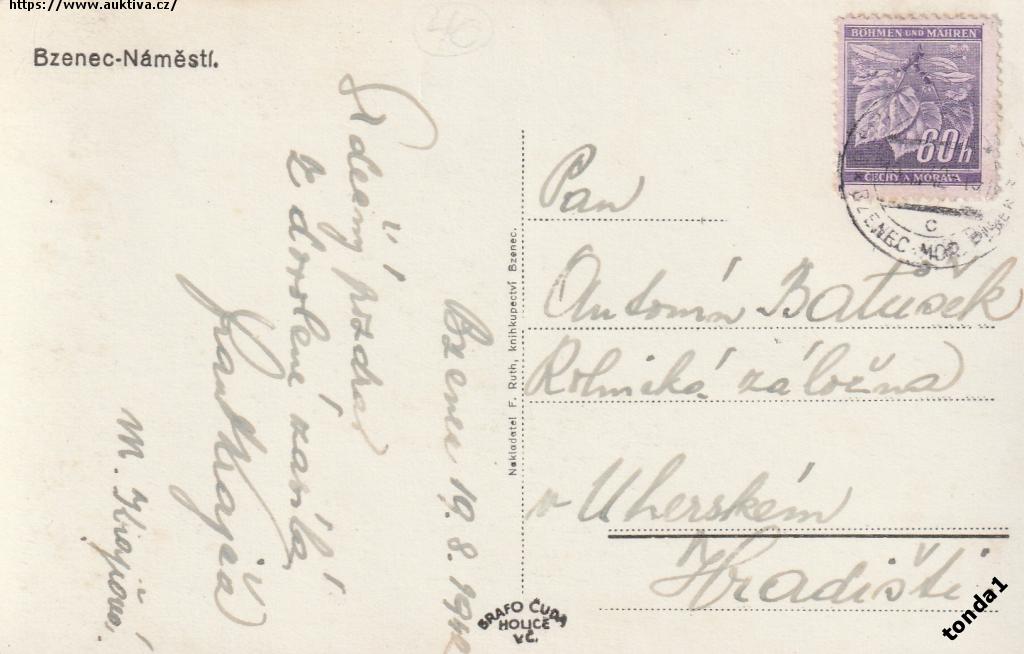 https://www.auktiva.cz/
46
Bzenec-Náměstí.
BÖHMEN UND MÄHREN
60h
ČECHY A MORAVA
BZENEC MOR.
C
Srdečný pozdrav
z dovolené zasílá
Jan Krajča
M. Krajčová.
Bzenec 19. 8. 1942
Nakladatel F. Ruth, knihkupectví Bzenec.
BRAFO ČUDA
HOLICE
V.Č.
Pan
Antonín Batůšek
Rolnická záložna
v Uherském
Hradišti
tonda1